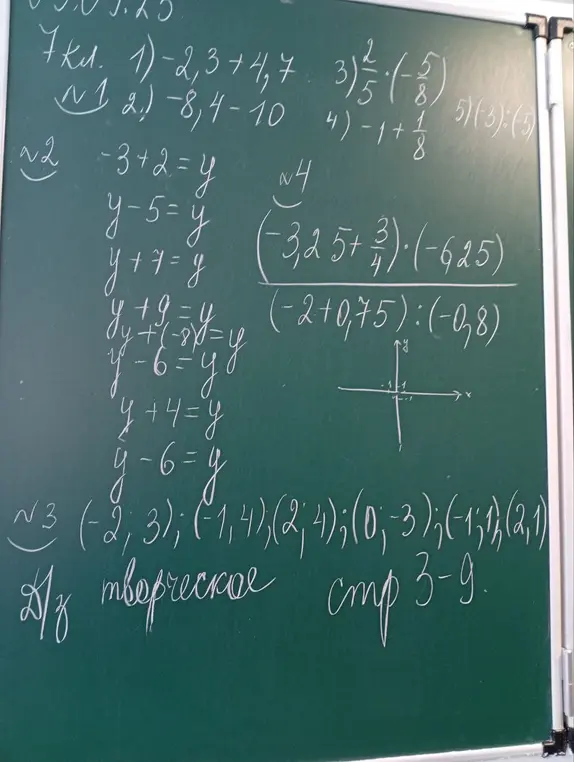 7 кл. 1) -2,3 + 4,7 3) 2/5 · (-5/8)
№1 2.) -8,4 - 10 4) -1 + 1/8 5) (-3) : (-5)
№2 -3 + 2 = y
y - 5 = y
y + 7 = y
y + 9 = y
y + (-8) = y
y - 6 = y
y + 4 = y
y - 6 = y
№4
(-3,25 + 3/4) · (-6,25)
(-2 + 0,75) : (-0,8)
y
-1 1
x
№3 (-2; 3); (-1, 4); (2; 4); (0; -3); (-1; 1), (2, 1)
Д/з творческое стр 3-9.